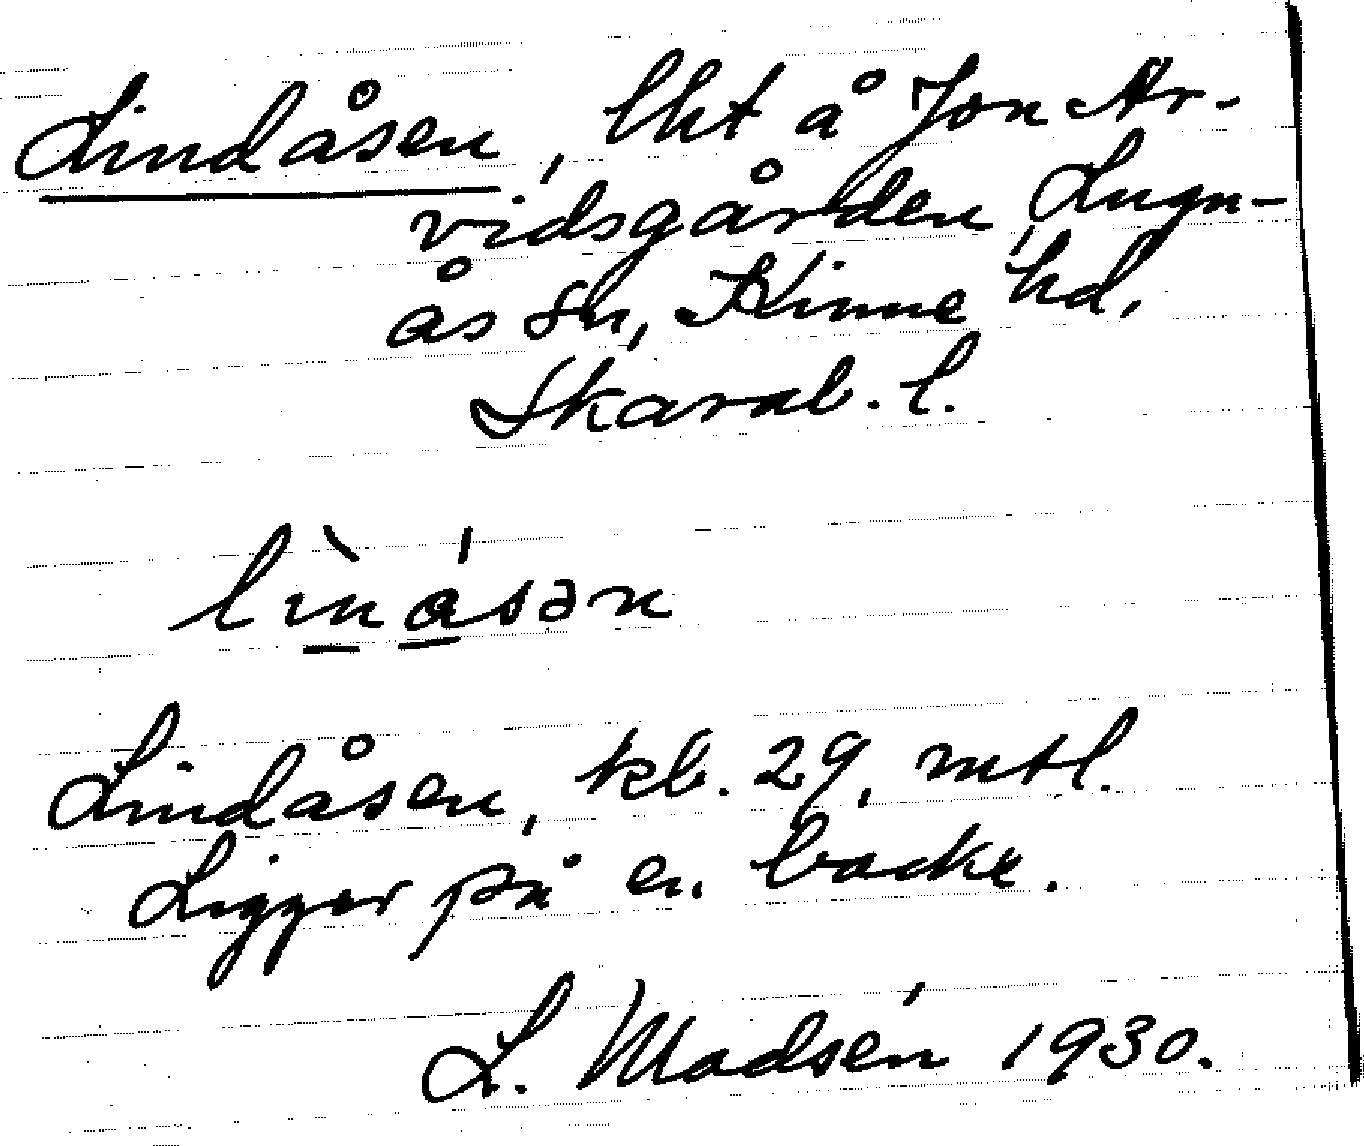 Lindåsen, lht å Jon Ar-
vidsgården, Lugn-
ås sn, Kinne hd,
Skarab. l.
lìnåsən
Lindåsen, kb. 29, mtl.
Ligger på en backe.
L. Modsén 1930.